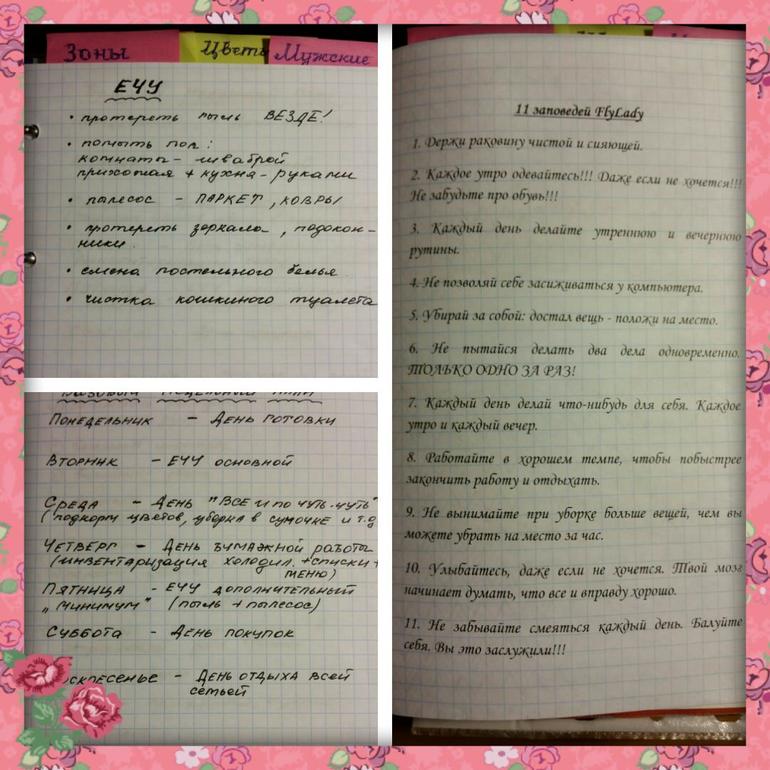 Зоны
Цветы
Мужские
ЕЧУ
• протереть пыль ВЕЗДЕ!
• помыть пол:
комнаты - шваброй
прихожая + кухня - руками
• пылесос - ПАРКЕТ, КОВРЫ
• протереть зеркала, подокон-
ники.
• смена постельного белья
• чистка кошкиного туалета
Понедельник - День готовки
Вторник - ЕЧУ основной
Среда - День "ВСЕ и по чуть-чуть"
(подкорм цветов, уборка в сумочке и т.д
Четверг - День бумажной работы
(инвентаризация холодил. +списки+
меню)
Пятница - ЕЧУ дополнительный
"минимум" (пыль + пылесос)
Суббота - День покупок
скресенье - День отдыха всей
семьей
11 заповедей FlyLady
1. Держи раковину чистой и сияющей.
2. Каждое утро одевайтесь!!! Даже если не хочется!!!
Не забудьте про обувь!!!
3. Каждый день делайте утреннюю и вечернюю
рутины.
4. Не позволяй себе засиживаться у компьютера.
5. Убирай за собой: достал вещь - положи на место.
6. Не пытайся делать два дела одновременно.
ТОЛЬКО ОДНО ЗА РАЗ!
7. Каждый день делай что-нибудь для себя. Каждое
утро и каждый вечер.
8. Работайте в хорошем темпе, чтобы побыстрее
закончить работу и отдыхать.
9. Не вынимайте при уборке больше вещей, чем вы
можете убрать на место за час.
10. Улыбайтесь, даже если не хочется. Твой мозг
начинает думать, что все и вправду хорошо.
11. Не забывайте смеяться каждый день. Балуйте
себя. Вы это заслужили!!!